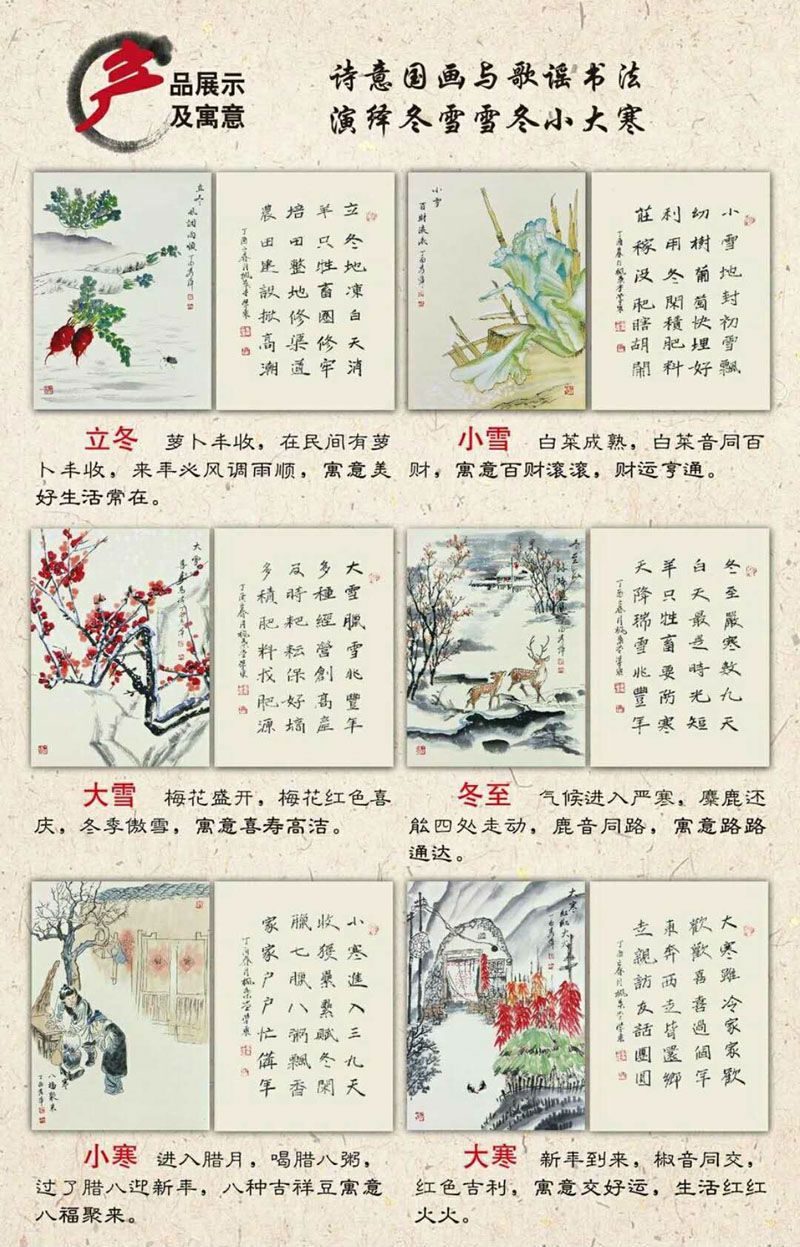 产品展示
及寓意
诗意国画与歌谣书法
演绎冬雪雪冬小大寒
立冬
风调雨顺
立冬地凍白天消
羊只牲畜圈修牢
培田整地修渠道
農田建設掀高潮
小雪
百財滾滾
小雪地封初雪飄
幼樹葡萄快埋好
利用冬閑積肥料
莊稼没肥瞎胡鬧
立冬 萝卜丰收，在民间有萝
卜丰收，来年必风调雨顺，寓意美
好生活常在。
小雪 白菜成熟，白菜音同百
财，寓意百财滚滚，财运亨通。
大雪
大雪臘雪兆豐年
多種經營創高産
及時耙耘保好墒
多積肥料找肥源
冬至
冬至嚴寒数九天
白天最短時光短
羊只牲畜要防寒
天降瑞雪兆豐年
大雪 梅花盛开，梅花红色喜
庆，冬季傲雪，寓意喜寿高洁。
冬至 气候进入严寒，麋鹿还
能四处走动，鹿音同路，寓意路路
通达。
小寒
八福聚来
小寒進入三九天
收獲纍纍賦冬閑
臘七臘八粥飄香
家家户户忙備年
大寒
紅紅火火
大寒雖冷家家歡
歡歡喜喜過個年
東奔西走皆還鄉
走親訪友話團圓
小寒 进入腊月，喝腊八粥，
过了腊八迎新年，八种吉祥豆寓意
八福聚来。
大寒 新年到来，椒音同交，
红色吉利，寓意交好运，生活红红
火火。